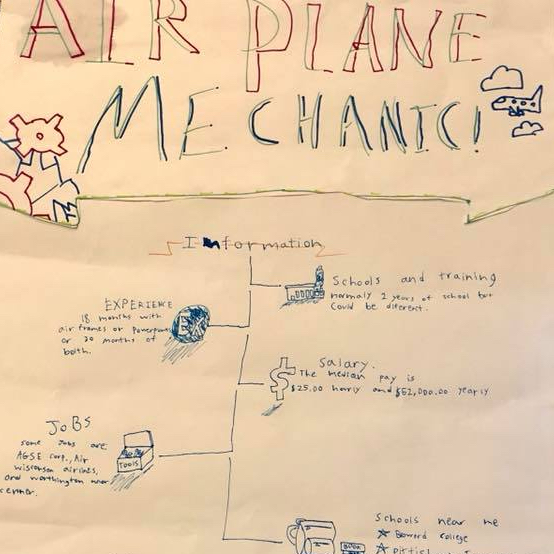 AIR PLANE
MECHANIC!
Information
Schools and training
normaly 2 years of school but
could be diferent.
EXPERIENCE
18 months with
air frames or
or 30 months of
both.
EX
Salary.
The median pay is
$25.00 horly and $52,000.00 yearly
$
JOBS
some Jobs are
AGSE corp., Air
wisconsin airlines,
and worthington
TOOLS
Schools near me
college